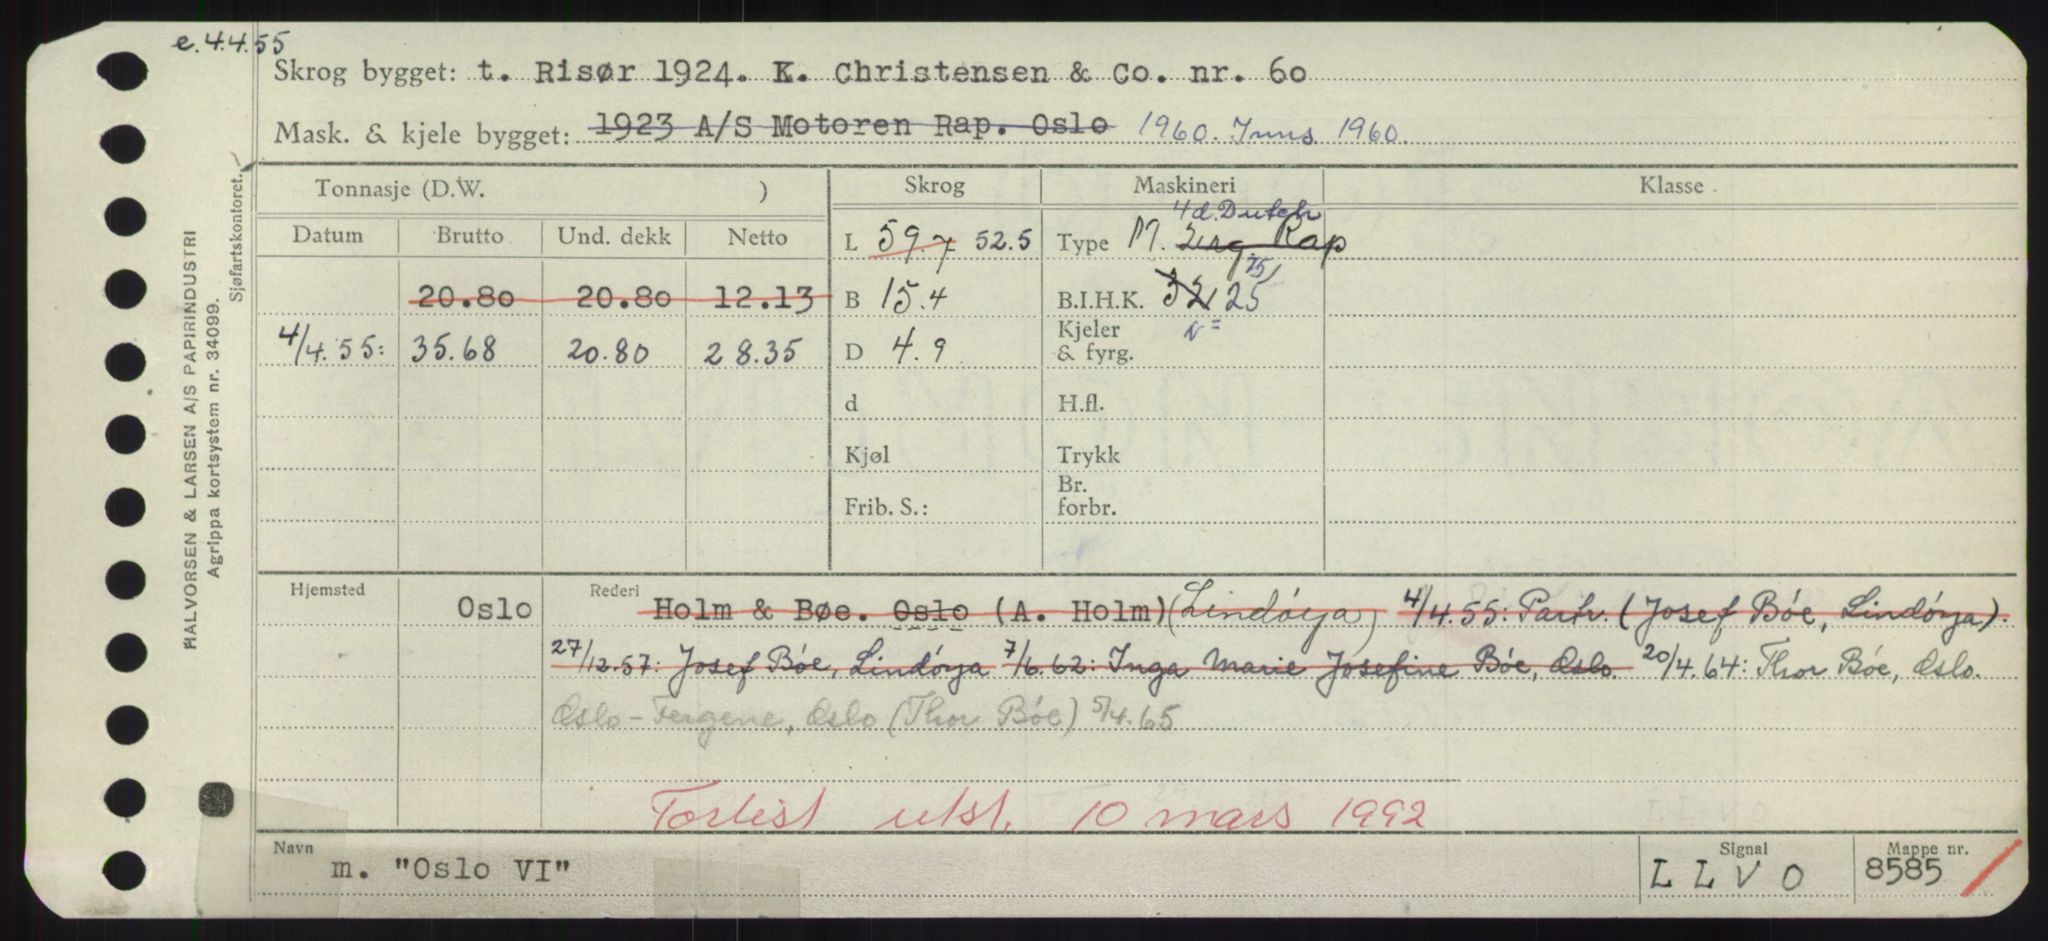 e.4.4.55
Skrog bygget: t. Risør 1924. K. Christensen & Co. nr. 60
Mask. & kjele bygget: 1923 A/S Motoren Rap. Oslo 1960. 1960.
Tonnasje (D.W. ) Skrog Maskineri Klasse
Datum Brutto Und. dekk Netto
L 59.7 52.5 Type M. 4d. Dutch Rap
20.80 20.80 12.13 B 15.4 B.I.H.K. 32 25
4/4.55: 35.68 20.80 28.35 D 4.9 Kjeler & fyrg.
d H.fl.
Kjøl Trykk
Frib. S.: Br. forbr.
HALVORSEN & LARSEN A/S PAPIRINDUSTRI
Agrippa kortsystem nr. 34099.
Sjøfartskontoret.
Hjemsted Oslo Rederi Holm & Bøe. Oslo (A. Holm) (Lindøya) 4/4.55: Partr. (Josef Bóe, Lindóya).
27/12.57: Josef Bóe, Lindóya 7/6.62: Inga Marie Josefine Bóe, Oslo. 20/4.64: Thor Bóe, Oslo.
Oslo-Fergene, Oslo (Thor Bóe) 5/4.65
Forlist utst. 10 mars 1992
Navn m. "Oslo VI" Signal L L V O Mappe nr. 8585